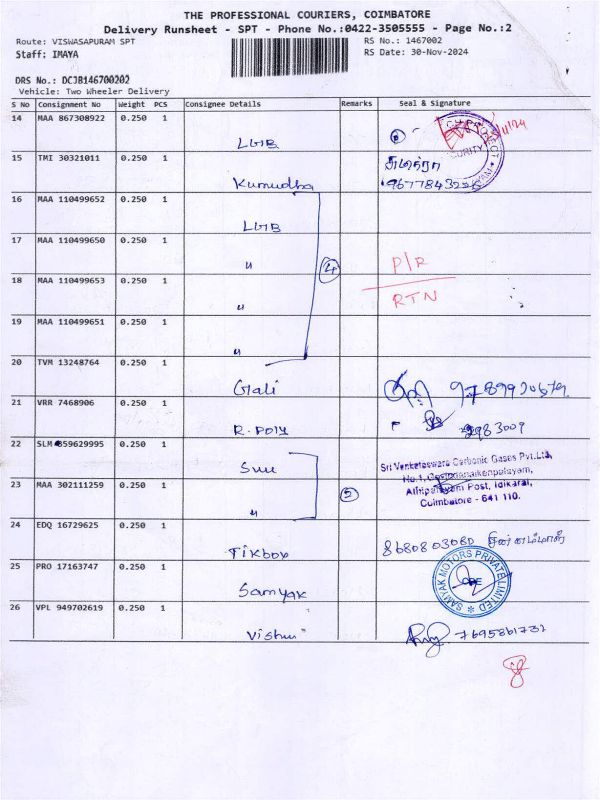 THE PROFESSIONAL COURIERS, COIMBATORE
Delivery Runsheet - SPT - Phone No.:0422-3505555 - Page No.:2
Route: VISWASAPURAM SPT
RS No.: 1467002
Staff: IMAYA
RS Date: 30-Nov-2024
DRS No.: DCJB146700202
Vehicle: Two Wheeler Delivery
S No Consignment No Weight PCS Consignee Details Remarks Seal & Signature
14 MAA 867308922 0.250 1
LMB
15 TMI 30321011 0.250 1 சுமித்ரா
Kumudha 9677843226
16 MAA 110499652 0.250 1
LMB
17 MAA 110499650 0.250 1 P/R
" 4
18 MAA 110499653 0.250 1 RTN
"
19 MAA 110499651 0.250 1
"
20 TVM 13248764 0.250 1
Gali
21 VRR 7468906 0.250 1
R. Poly
22 SLM 859629995 0.250 1 Sri Venketeswara Carbonic Gases Pvt.Ltd,
23 MAA 302111259 0.250 1 Athipalayam Post, Idikarai,
" 2 Coimbatore - 641 110.
24 EDQ 16729625 0.250 1
Tikbox 8680803080
25 PRO 17163747 0.250 1 SAMYAK MOTORS PRIVATE LIMITED
Samyak CBE
26 VPL 949702619 0.250 1
Vishnu 7695861732